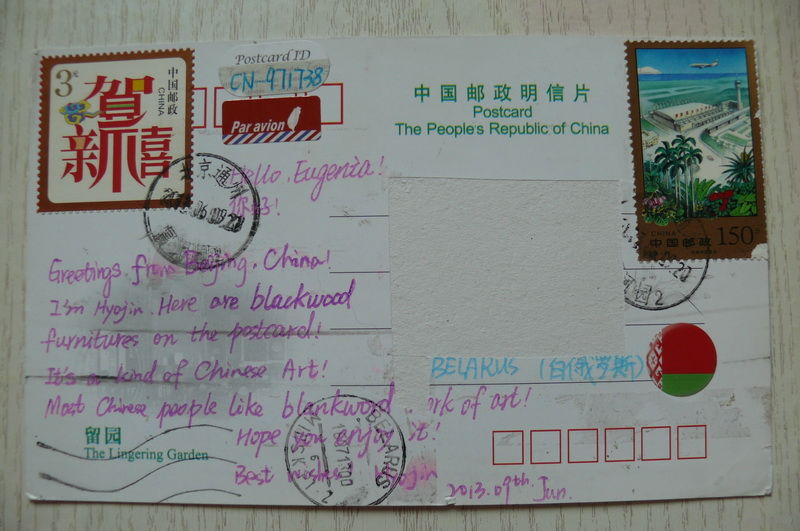 3元
中国邮政
CHINA
贺
新禧
Postcard ID
CN-971738
Par avion
中国邮政明信片
Postcard
The People's Republic of China
CHINA
中国邮政 150分
北京通州
Hello, Eugenia!
你好!
Greetings from Beijing, China!
I'm Hyojin. Here are blackwood
furnitures on the postcard!
It's a kind of Chinese Art!
Most Chinese people like blankwood work of art!
Hope you enjoy it!
Best wishes Hyojin
2013.09th.Jun.
BELARUS (白俄罗斯)
BELARUS
MINSK
留园
The Lingering Garden